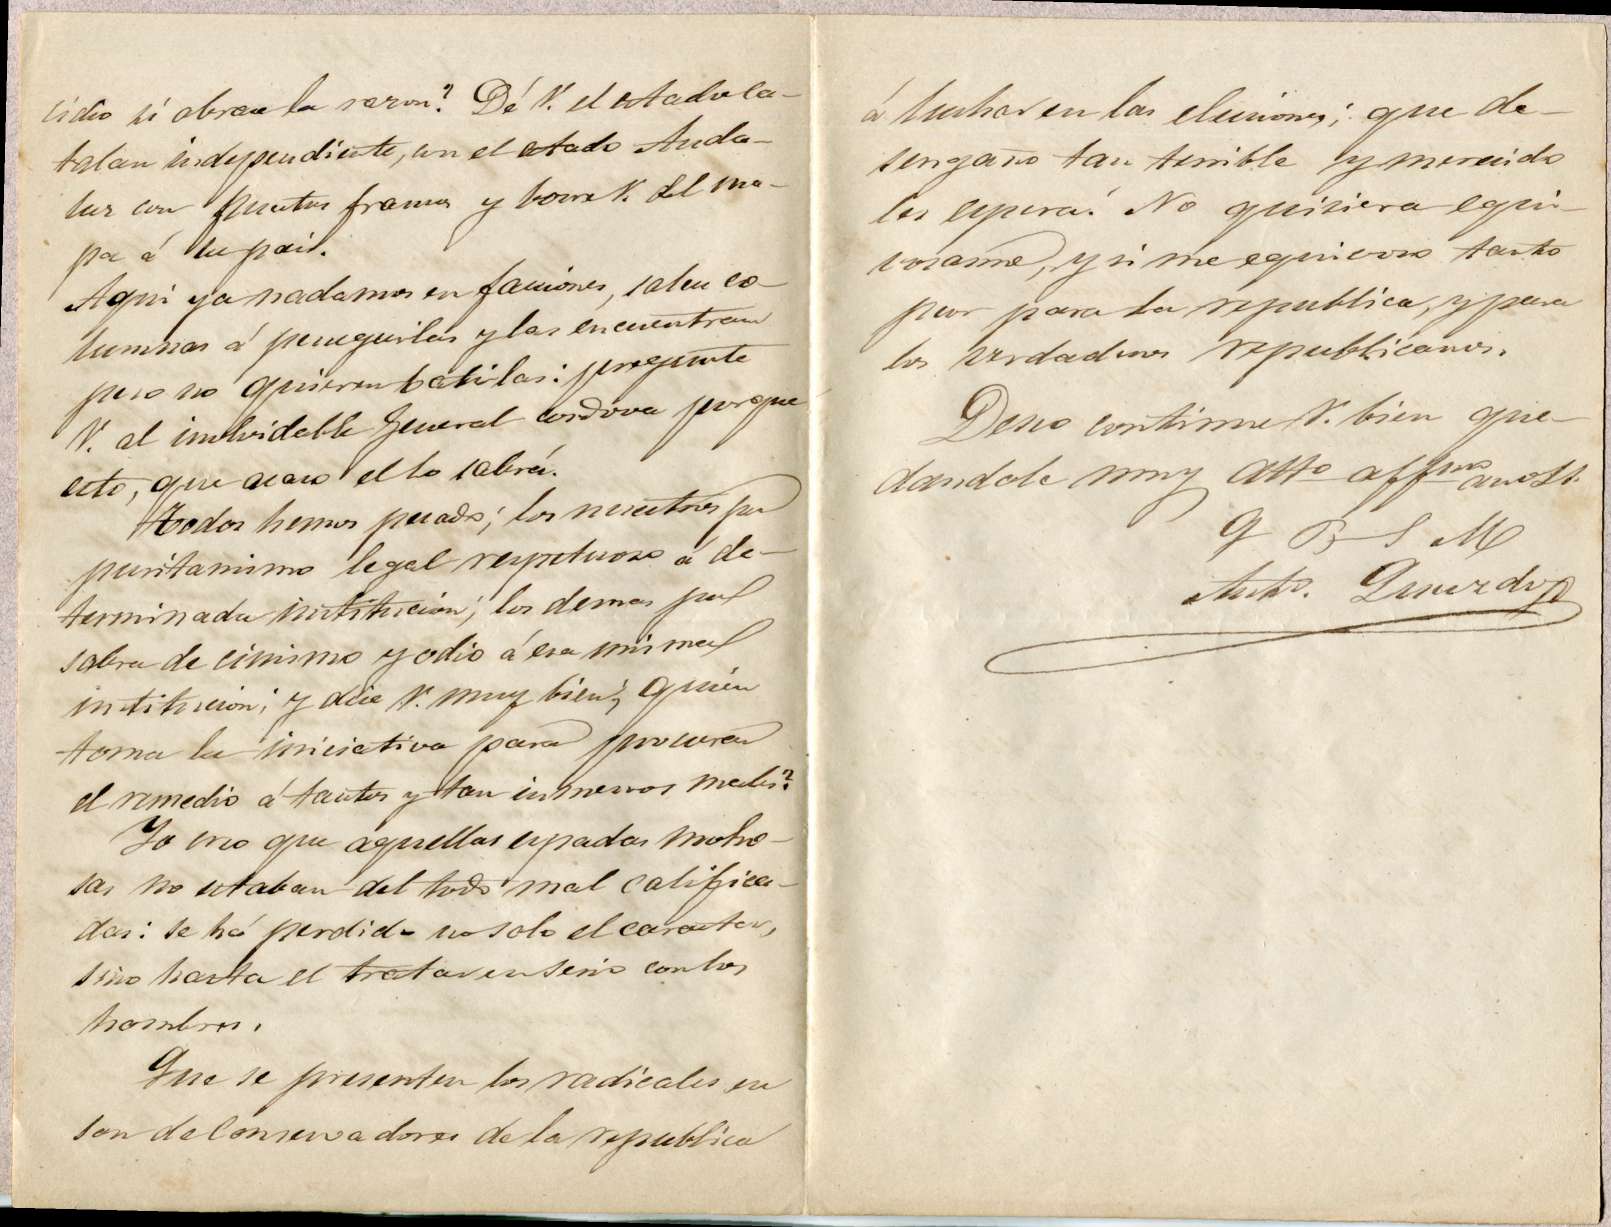 cidio si obrara la razon? Dé V. el estado ca-
talan independiente, un el estado Anda-
luz con puertos francos y borre V. del ma-
pa á su pais.
Aqui ya nadamos en facciones, salen co-
lumnas á perseguirlas y las encuentran
pero no quieren batirlas: pregunte
V. al inolvidable General Cordova porque
esto, que acaso el lo sabrá.
Todos hemos pecado; los nuestros por
puritanismo legal respetuoso á de-
terminada institucion; los demas por
sobra de cinismo y odio á esa misma
institucion; y dice V. muy bien; quien
toma la iniciativa para procurar
el remedio á tantos y tan inmensos males?
Yo creo que aquellas espadas moho-
sas no estaban del todo mal califica-
das: se há perdido no solo el caracter,
sino hasta el tratar en serio con los
hombres.
Que se presenten los radicales en
son de Conservadores de la republica
á luchar en las elecciones; que de-
sengaño tan terrible y merecido
les espera! No quisiera equi-
vocarme, y si me equivoco tanto
peor para la republica, y para
los verdaderos republicanos.
Deseo continue V. bien que-
dandole muy atto affmo amo SS.
Q B S M
Anto.